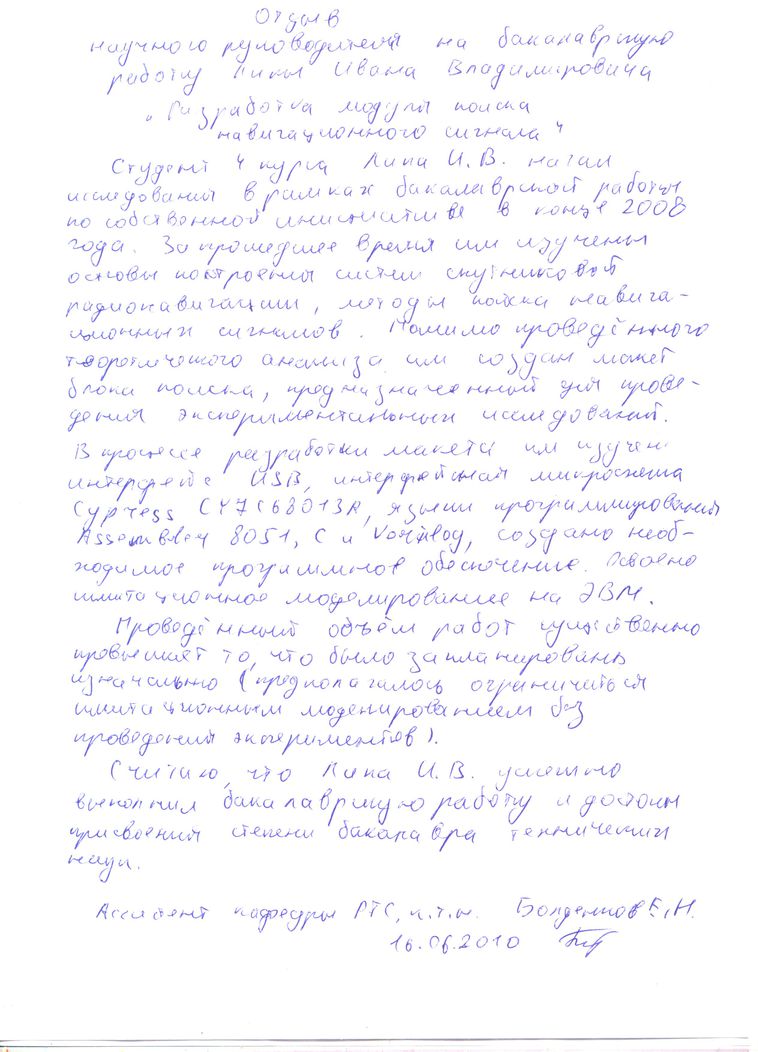 Отзыв
научного руководителя на бакалаврскую
работу Липы Ивана Владимировича
„Разработка модуля поиска
навигационного сигнала“
Студент 4 курса Липа И.В. начал
исследования в рамках бакалаврской работы
по собственной инициативе в конце 2008
года. За прошедшее время им изучены
основы построения систем спутниковой
радионавигации, методы поиска навига-
ционных сигналов. Помимо проведённого
теоретического анализа им создан макет
блока поиска, предназначенный для прове-
дения экспериментальных исследований.
В процессе разработки макета им изучен
интерфейс USB, интерфейсная микросхема
Cypress CY7C68013A, языки программирования
Assembley 8051, C и Verilog, создано необ-
ходимое программное обеспечение. Освоено
имитационное моделирование на ЭВМ.
Проведённый объём работ существенно
превышает то, что было запланировано
изначально (предполагалось ограничиться
имитационным моделированием без
проведения экспериментов).
Считаю, что Липа И.В. успешно
выполнил бакалаврскую работу и достоин
присвоения степени бакалавра технических
наук.
Ассистент кафедры РТС, к.т.н. Болденков Е.Н.
16.06.2010